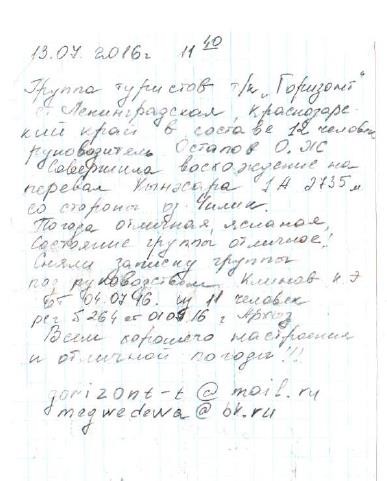 13.07.2016г 11 40
Группа туристов т/к „Горизонт"
ст Ленинградская, Краснодарс-
кий край в составе 12 человек
руководитель Остапов О.Ж
Совершила восхождение на
перевал 1А 2735м
со стороны оз. Чилик.
Погода отличная, ясная,
Состояние группы отличное!
Сняли записку группы
под руководством Климов
от 04.07.16. из 11 человек
рег 5264 от 01.07.16 г Архыз
Всем хорошего настроения
и отличной погоды!!!
gorizont-t@mail.ru
megwedewa@bk.ru